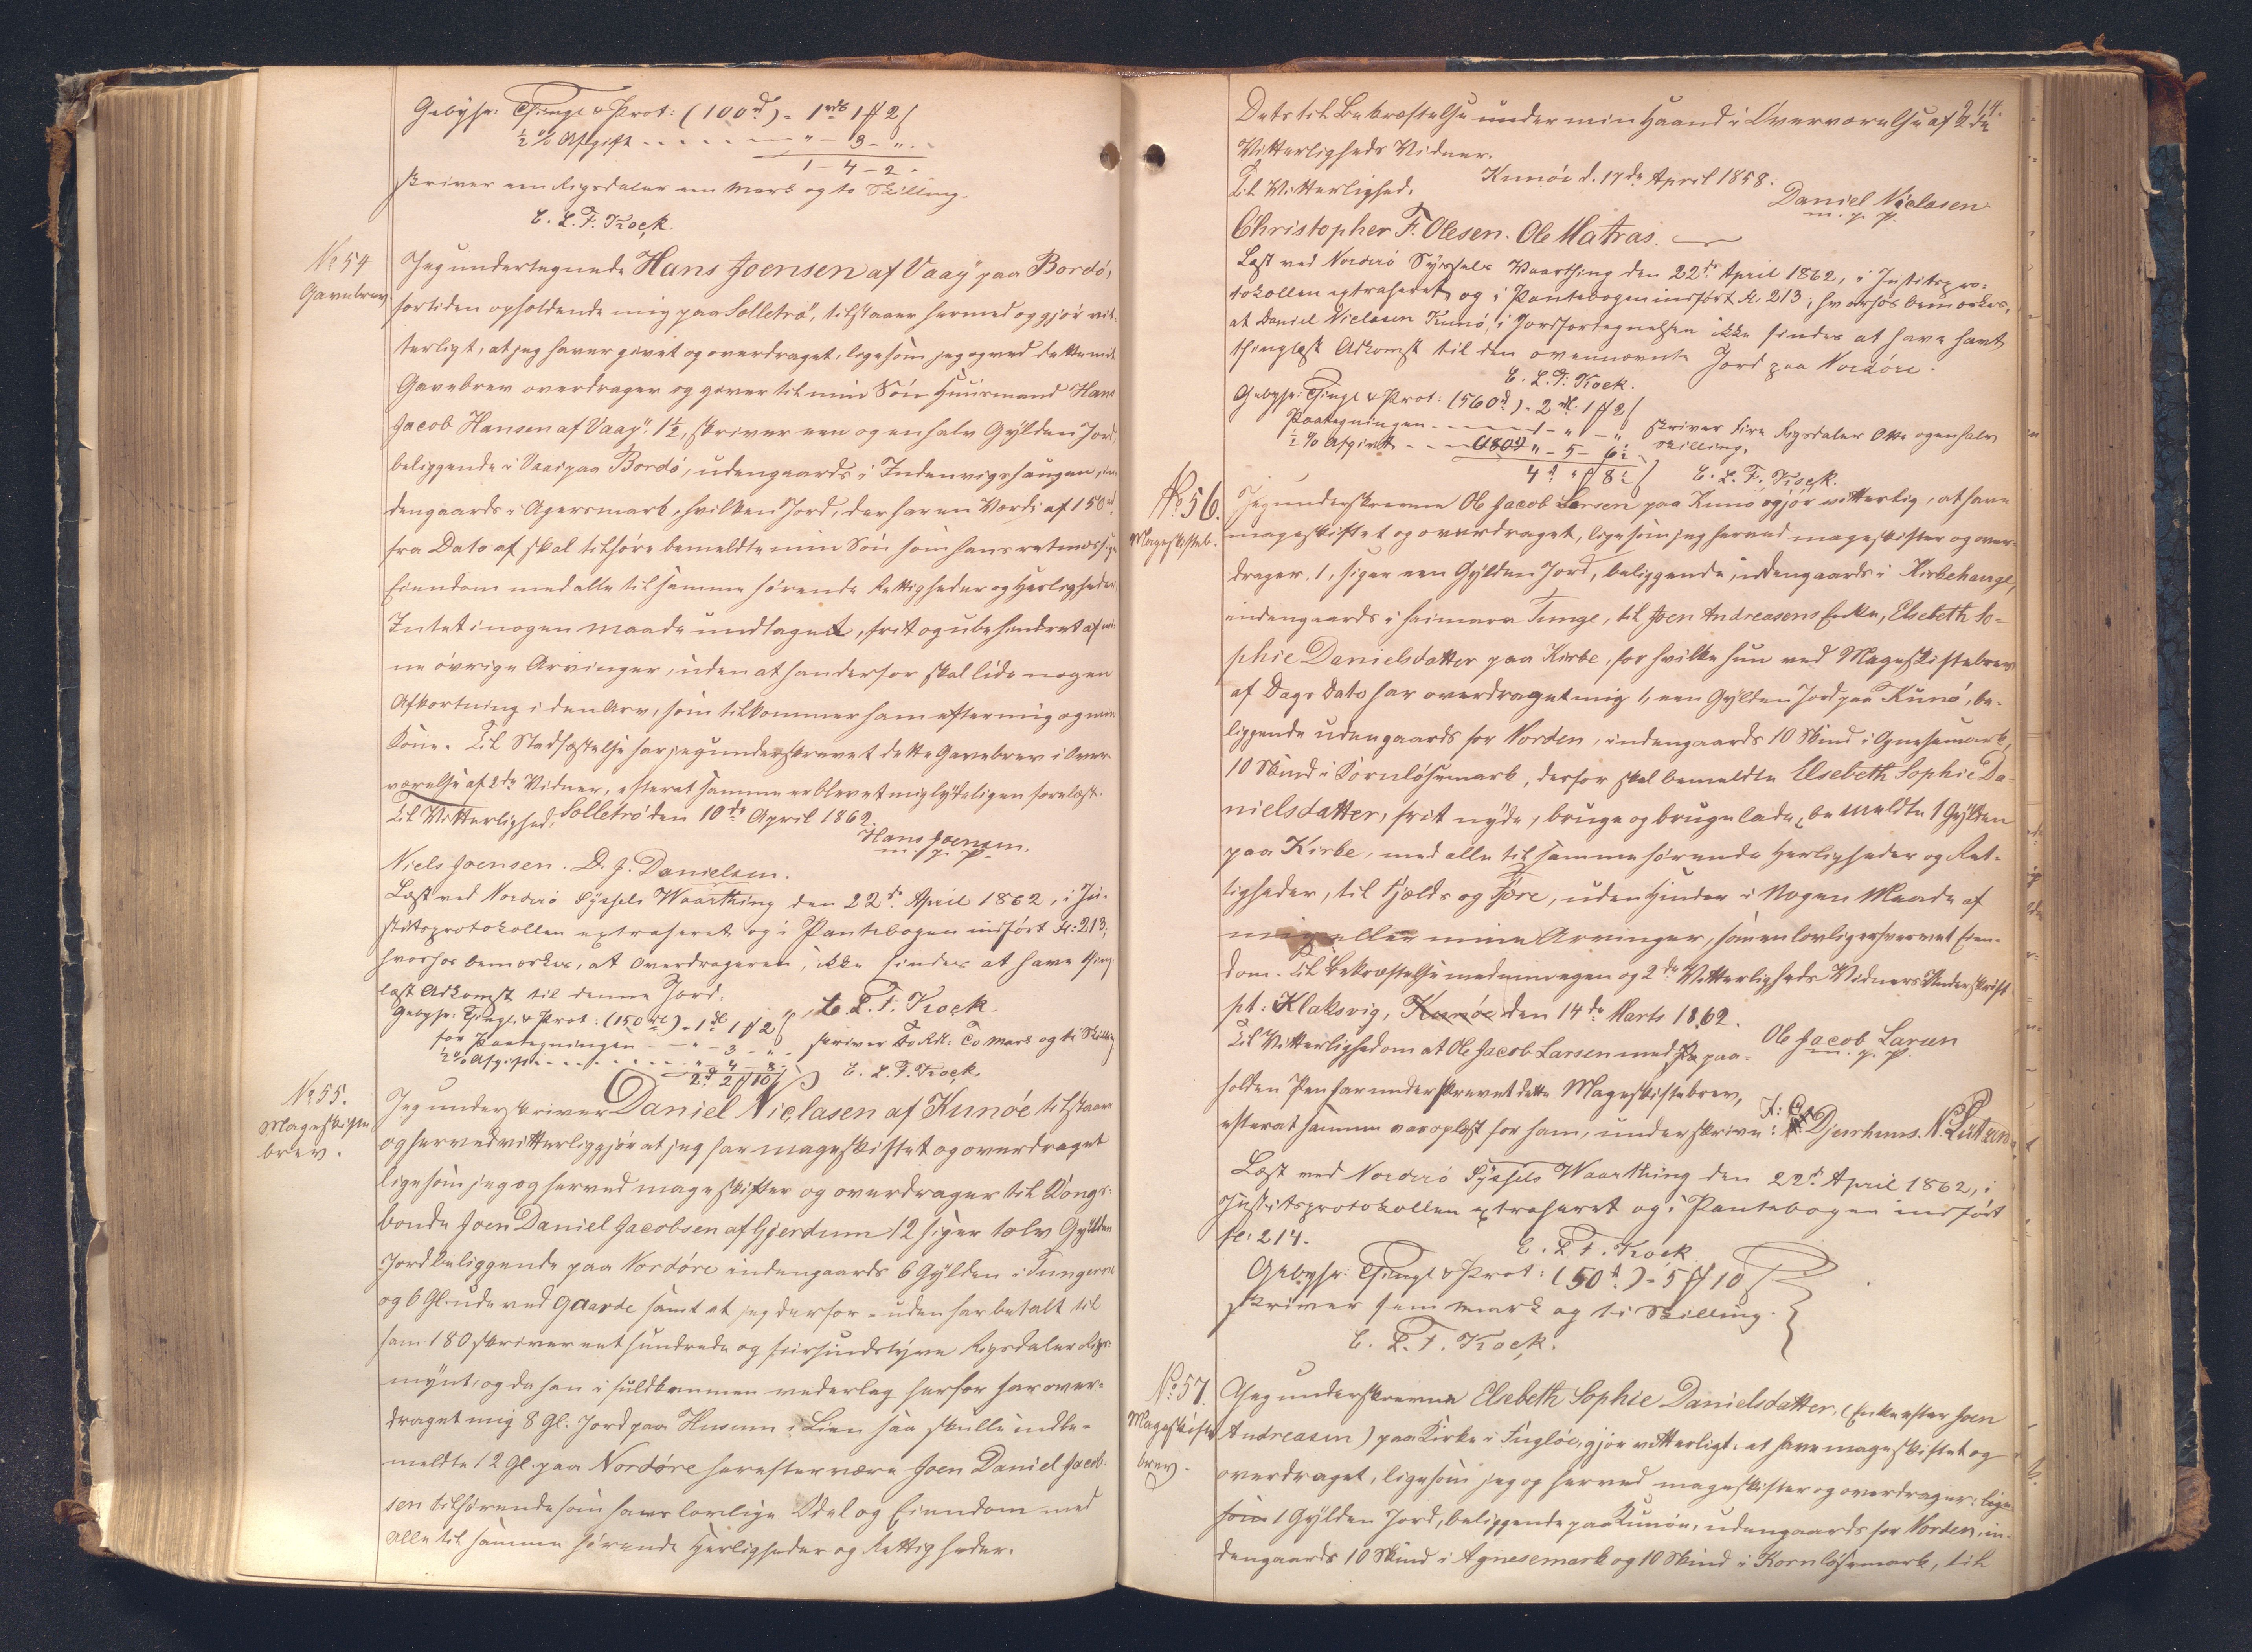 Gebyhr: Thingl & Prot: (100rd) = 1rdl 1 # 2 ß
½ % Afgift - - - - - " - 3 - " -
1 - 4 - 2.
skriver een Rigsdaler een Mark og to Skilling.
E. L. F. Kock.
No 54
Gavebrev
Jeg undertegnede Hans Joensen af Vaaÿ paa Bordö,
fortiden opholdende mig paa Solletrö, tilstaaer hermed og gjør vit-
terligt, at jeg haver givet og overdraget, ligesom jeg og ved dette mit
Gavebrev overdrager og giver til min Søn Huusmand Hans
Jacob Hansen af Vaaÿ: 1½, skriver een og en halv Gylden Jord,
beliggende i Vaaÿ paa Bordö, udengaards i Indenvigshaugen, in-
dengaards i Agersmark, hvilken Jord, der har en Værdi af 150rd
fra Dato af skal tilhøre bemeldte min Søn som hans retmæssige
Eiendom med alle til samme hørende Rettigheder og Herligheder,
Intet i nogen Maade undtaget, frit og ubehindret af mi-
ne øvrige Arvinger, uden at han derfor skal lide nogen
Afkortning i den Arv, som tilkommer ham efter mig og min
Kone. Til Stadfæstelse har jeg underskrevet dette Gavebrev i Over-
værelse af 2de Vidner, efterat samme er blevet mig lydeligen forelæst.
Solletrö den 10de April 1862.
Til Vitterlighed,
Hans Joensen.
m. p. p.
Niels Joensen. D. J. Danielsen.
Læst ved Norderö Syssels Vaarthing den 22de April 1862, i Ju-
stitsprotokollen extraheret og i Pantebogen indført fl: 213;
hvorhos bemærkes, at Overdrageren, ikke findes at have thing
læst Adkomst til denne Jord.
E. L. F. Kock.
Gebyhr: Thingl. & Prot: (150rd) = 1rd 1 # 2 ß
for Paategningen - - " - 3 - " -
½ % Afgift - - - - - " - 4 - 8 -
2rd 2 # 10 ß
skriver to Rdl: to Mark og ti Skilling
E. L. F. Kock.
No 55.
Mageskifte
brev.
Jeg underskriver Daniel Niclasen af Kunöe tilstaaer
og herved vitterliggjør at jeg har mageskiftet og overdraget
ligesom jeg og herved mageskifter og overdrager til Kongs-
bonde Joen Daniel Jacobsen af Gjerdum 12 siger tolv Gylden
Jord beliggende paa Nordöre indengaards 6 Gylden i Tungerne
og 6 Gl. ude ved Gaarde samt at jeg derfor - uden har betalt til
ham 180 skriver eet hundrede og fiirsindstyve Rigsdaler Rigs-
mynt, og da han i fuldkommen vederlag herfor har over-
draget mig 8 Gl. Jord paa Husum i Lien saa skulle indbe-
meldte 12 Gl. paa Nordöre herefter være Joen Daniel Jacob-
sen tilhørende som hans lovlige Odel og Eiendom med
alle til samme hørende Herligheder og Rettigheder.
214.
Dets til Bekræftelse under min Haand i Overværelse af 2de
Vitterligheds Vidner.
Kunöe d. 17de April 1858.
Til Vitterlighed.
Daniel Niclasen
m. p. p.
Christopher F. Olesen. Ole Matras.
Læst ved Norderö Syssels Vaarthing den 22de April 1862, i Justitspro-
tokollen extraheret og i Pantebogen indført fl. 213; hvorhos bemærkes,
at Daniel Niclasen Kunö, i Jordfortegnelsen ikke findes at have havt
thinglæst Adkomst til den ovennævnte Jord paa Nordöre.
E. L. F. Kock.
Gebyhr: Thingl & Prot: (560rd) = 2rdl. 1 # 2 ß
Paategningen - - - - 1 - " - "
½ % Afgift - - (180rd) " - 5 - 6½
4rd " # 8½ ß
skriver fire Rigsdaler Otte og en halv
Skilling.
E. L. F. Kock.
No 56.
Mageskifteb.
Jeg underskrevne Ole Jacob Larsen paa Kunö og gjør vitterlig, at have
mageskiftet og overdraget, ligesom jeg herved mageskifter og over-
drager, 1, siger een Gylden Jord, beliggende, uddengaards i Kirkehauge,
indengaards i heimara Tunge, til Joen Andreasens Enke, Elsebeth So-
phie Danielsdatter paa Kirke, for hvilke hun ved Mageskiftebrev
af Dags Dato har overdraget mig 1, een Gylden Jord paa Kunö, be-
liggende udengaards for Norden, indengaards 10 Skind i Agnesemark,
10 Skind i Kornløsemark, derfor skal bemeldte Elsebeth Sophie Da-
nielsdatter, frit nyde, bruge og bruge lade, bemeldte 1 Gylden
paa Kirke, med alle til samme hørende Herligheder og Ret-
tigheder, til Fjelds og Fjöre, uden Hinder i Nogen Maade af
mig eller mine Arvinger, som en lovlig erhvervet Eien-
dom. Til Bekræftelse med min egen og 2de Vitterligheds Vidners Underskrift
pt: Klaksvig, Kunöe den 14de Marts 1862.
Ole Jacob Larsen
m. p. p.
Til Vitterlighed om at Ole Jacob Larsen med paa-
holden Pen har underskrevet dette Mageskiftebrev,
efterat samme var oplæst for ham, underskrive: J: C. Djurhuus. N. Lützen.
Læst ved Norderö Syssels Vaarthing den 22de April 1862, i
Justitsprotokollen extraheret og i Pantebogen indført
fl: 214.
E. L. F. Kock
Gebyhr: Thingl & Prot: (50rd) = 5 # 10 ß
skriver fem Mark og ti Skilling.
E. L. F. Kock.
No 57.
Mageskifte
brev.
Jeg underskrevne Elsebeth Sophie Danielsdatter, (Enke efter Joen
Andreasen) paa Kirke i Fuglöe, gjør vitterligt: at have mageskiftet og
overdraget, ligesom jeg og herved mageskifter og overdrager: lige
som 1 Gylden Jord, beliggende paa Kunöe, udengaards for Norden, in-
dengaards 10 Skind i Agnesemark og 10 Skind i Kornløsemark, til